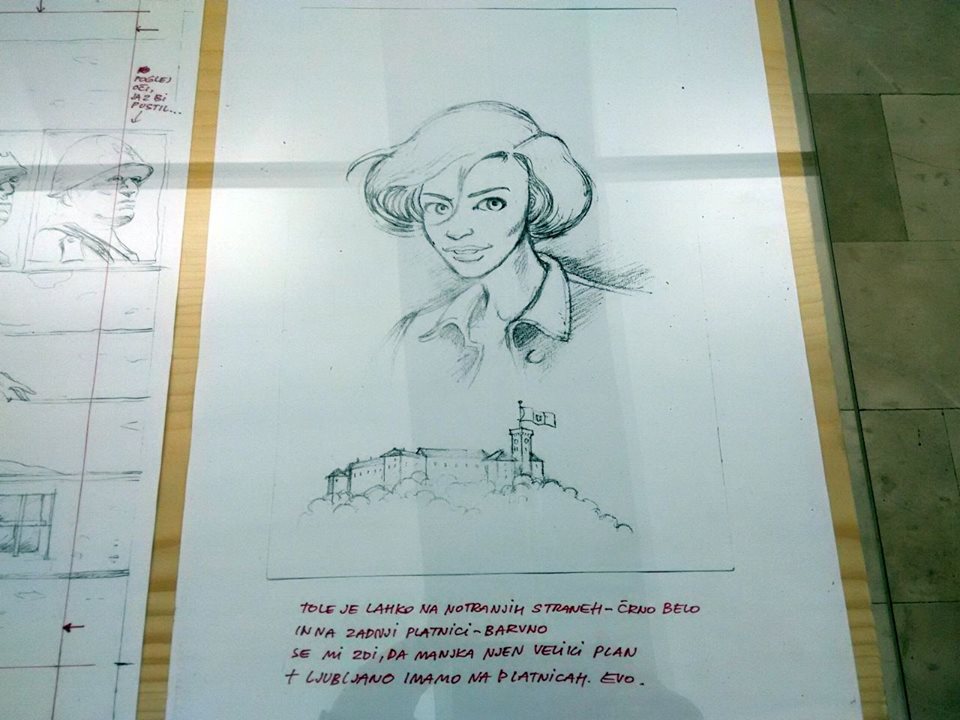 POGLEJ
OČI,
JAZ BI
PUSTIL...
TOLE JE LAHKO NA NOTRANJIH STRANEH - ČRNO BELO
IN NA ZADNJI PLATNICI - BARVNO
SE MI ZDI, DA MANJKA NJEN VELIKI PLAN
+ LJUBLJANO IMAMO NA PLATNICAH. EVO.